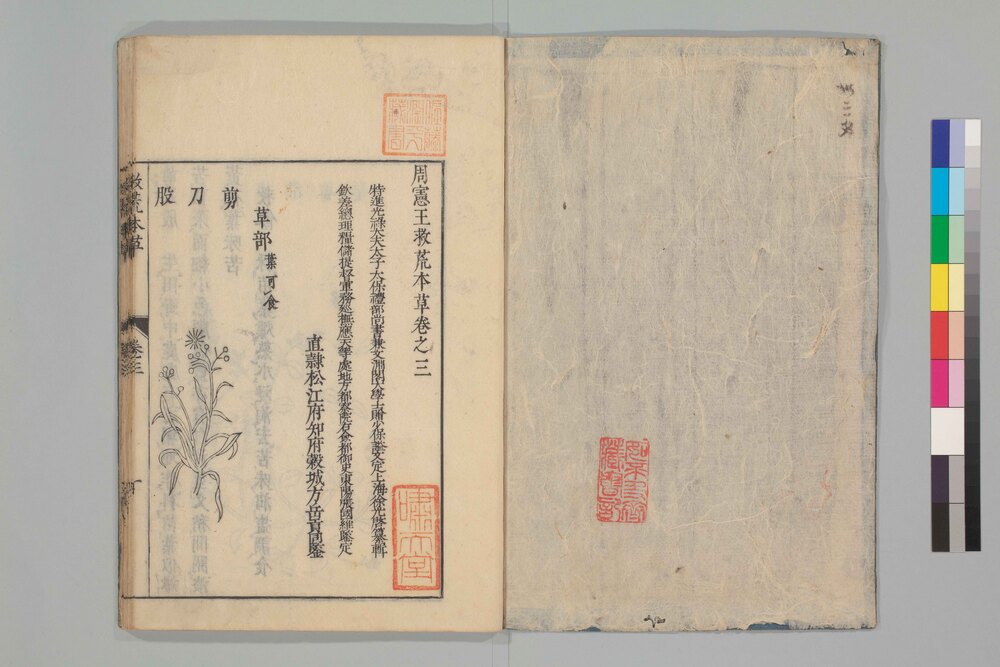 周憲王救荒本草卷之三
特進光祿大夫太子太保禮部尚書兼文淵閣大學士贈少保謚文定上海徐光啓纂輯
欽差總理糧儲提督軍務巡撫應天等處地方都察院右僉都御史東陽張國維鑒定
直隸松江府知府穀城方岳貢同鑒
草部 葉可食
剪
刀
股
救荒本草
卷三
嘯
堂